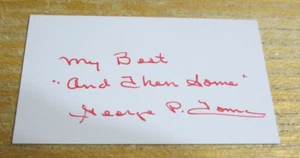 My Best
"And Then Some"
George P. Toma